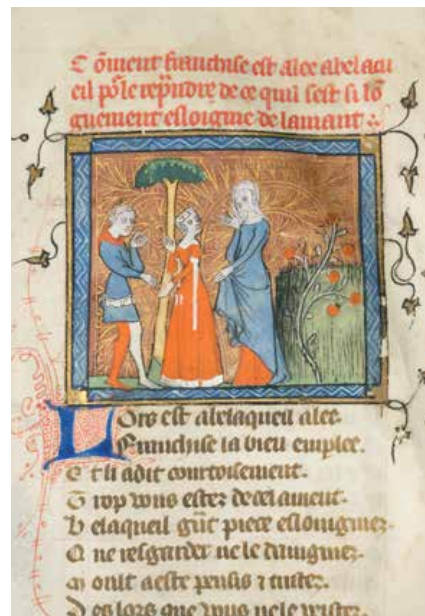 Cōment franchise est alee a belacu
eil pō le rep̄ndre de ce quil sest si lō
guement esloignie de lamant
Lors est a belaqueil alee
Franchise la bien emplee
Et li a dit courtoisement
Trop vous estez de cel amant
Belaqueil gn̄t piece esloingniez
Que resgarder ne le daingniez
Moult a este pensis ⁊ tristez
Des lors que vous ne le vistez